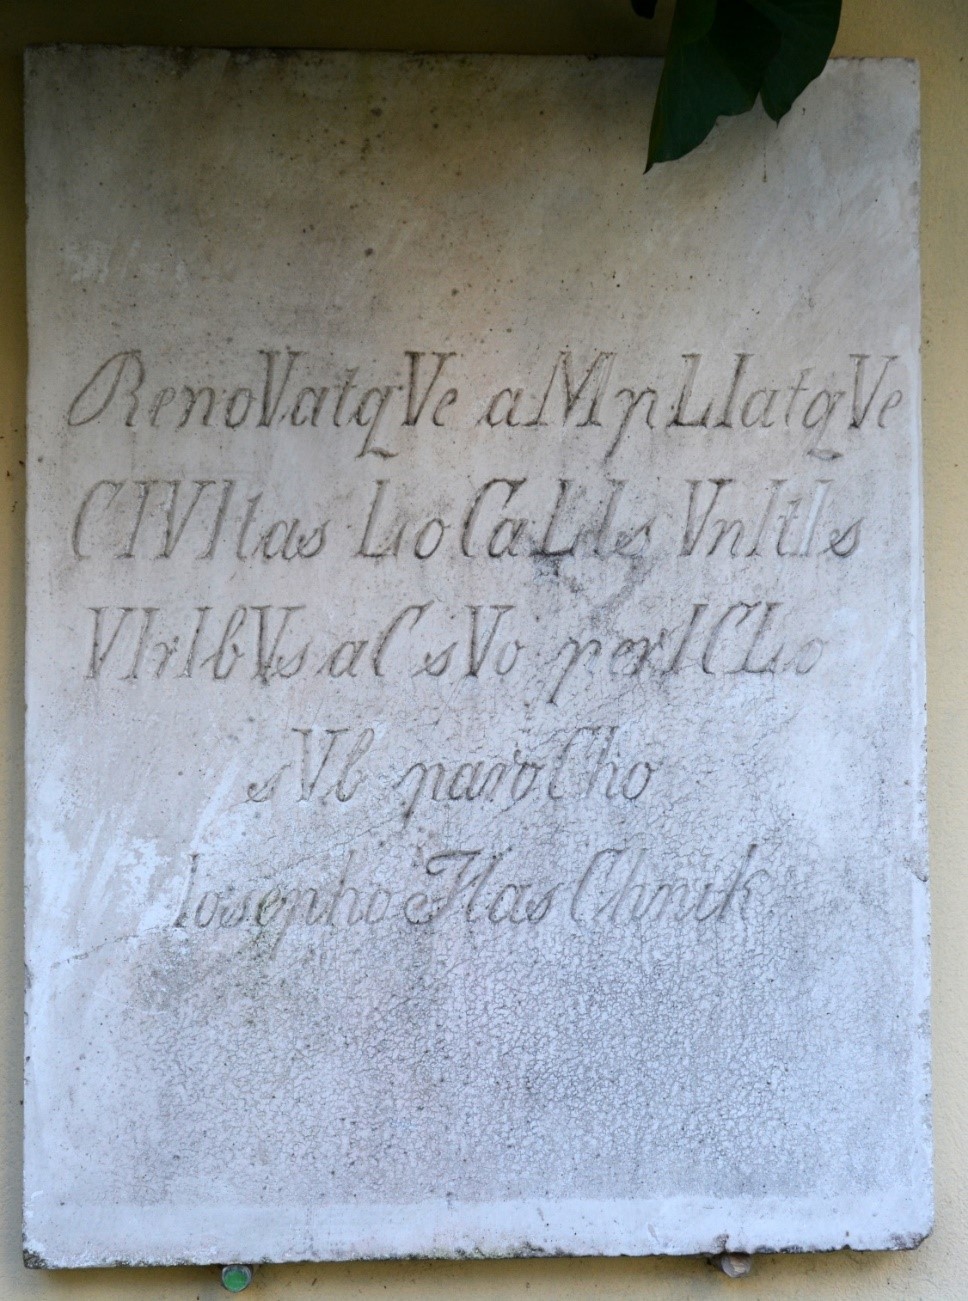 RenoVatqVe aMpLIatqVe
CIVItas LoCaLIs VnItIs
VIrIbVs aC sVo perICLo
sVb paroCho
Iosepho HasChnik